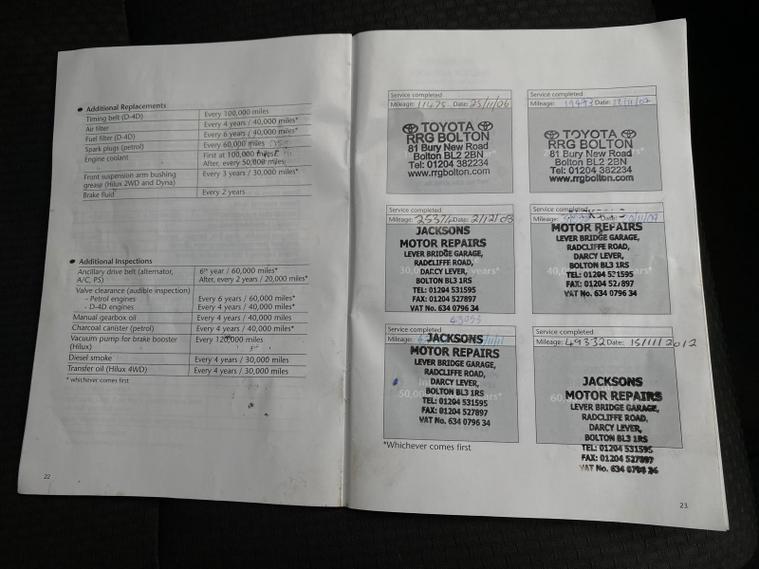 Additional Replacements
Timing belt (D-4D) Every 100,000 miles
Air filter Every 4 years / 40,000 miles*
Fuel filter (D-4D) Every 6 years / 40,000 miles*
Spark plugs (petrol) Every 60,000 miles
Engine coolant First at 100,000 miles
After, every 50,000 miles
Front suspension arm bushing Every 3 years / 30,000 miles*
grease (Hilux 2WD and Dyna)
Brake fluid Every 2 years
Additional Inspections
Ancillary drive belt (alternator, 6th year / 60,000 miles*
A/C, PS) After, every 2 years / 20,000 miles*
Valve clearance (audible inspection)
- Petrol engines Every 6 years / 60,000 miles*
- D-4D engines Every 4 years / 40,000 miles*
Manual gearbox oil Every 4 years / 40,000 miles
Charcoal canister (petrol) Every 4 years / 40,000 miles*
Vacuum pump for brake booster Every 120,000 miles
(Hilux)
Diesel smoke Every 4 years / 30,000 miles
Transfer oil (Hilux 4WD) Every 4 years / 30,000 miles
* whichever comes first
22
Service completed
Mileage: 11475 Date: 25/11/06
TOYOTA
RRG BOLTON
81 Bury New Road
Bolton BL2 2BN
Tel: 01204 382234
www.rrgbolton.com
Service completed
Mileage: Date:
TOYOTA
RRG BOLTON
81 Bury New Road
Bolton BL2 2BN
Tel: 01204 382234
www.rrgbolton.com
Service completed
Mileage: Date: 2/12/08
JACKSONS
MOTOR REPAIRS
LEVER BRIDGE GARAGE,
RADCLIFFE ROAD,
DARCY LEVER,
BOLTON BL3 1RS
TEL: 01204 531595
FAX: 01204 527897
VAT No. 634 0796 34
Service completed
Mileage: Date:
MOTOR REPAIRS
LEVER BRIDGE GARAGE,
RADCLIFFE ROAD,
DARCY LEVER,
BOLTON BL3 1RS
TEL: 01204 531595
FAX: 01204 527897
VAT No. 634 0796 34
43053
Service completed
Mileage:
JACKSONS
MOTOR REPAIRS
LEVER BRIDGE GARAGE,
RADCLIFFE ROAD,
DARCY LEVER,
BOLTON BL3 1RS
TEL: 01204 531595
FAX: 01204 527897
VAT No. 634 0796 34
Service completed
Mileage: 49332 Date: 15/11/2012
JACKSONS
MOTOR REPAIRS
LEVER BRIDGE GARAGE,
RADCLIFFE ROAD,
DARCY LEVER,
BOLTON BL3 1RS
TEL: 01204 531595
FAX: 01204 527897
VAT No. 634
*Whichever comes first
23